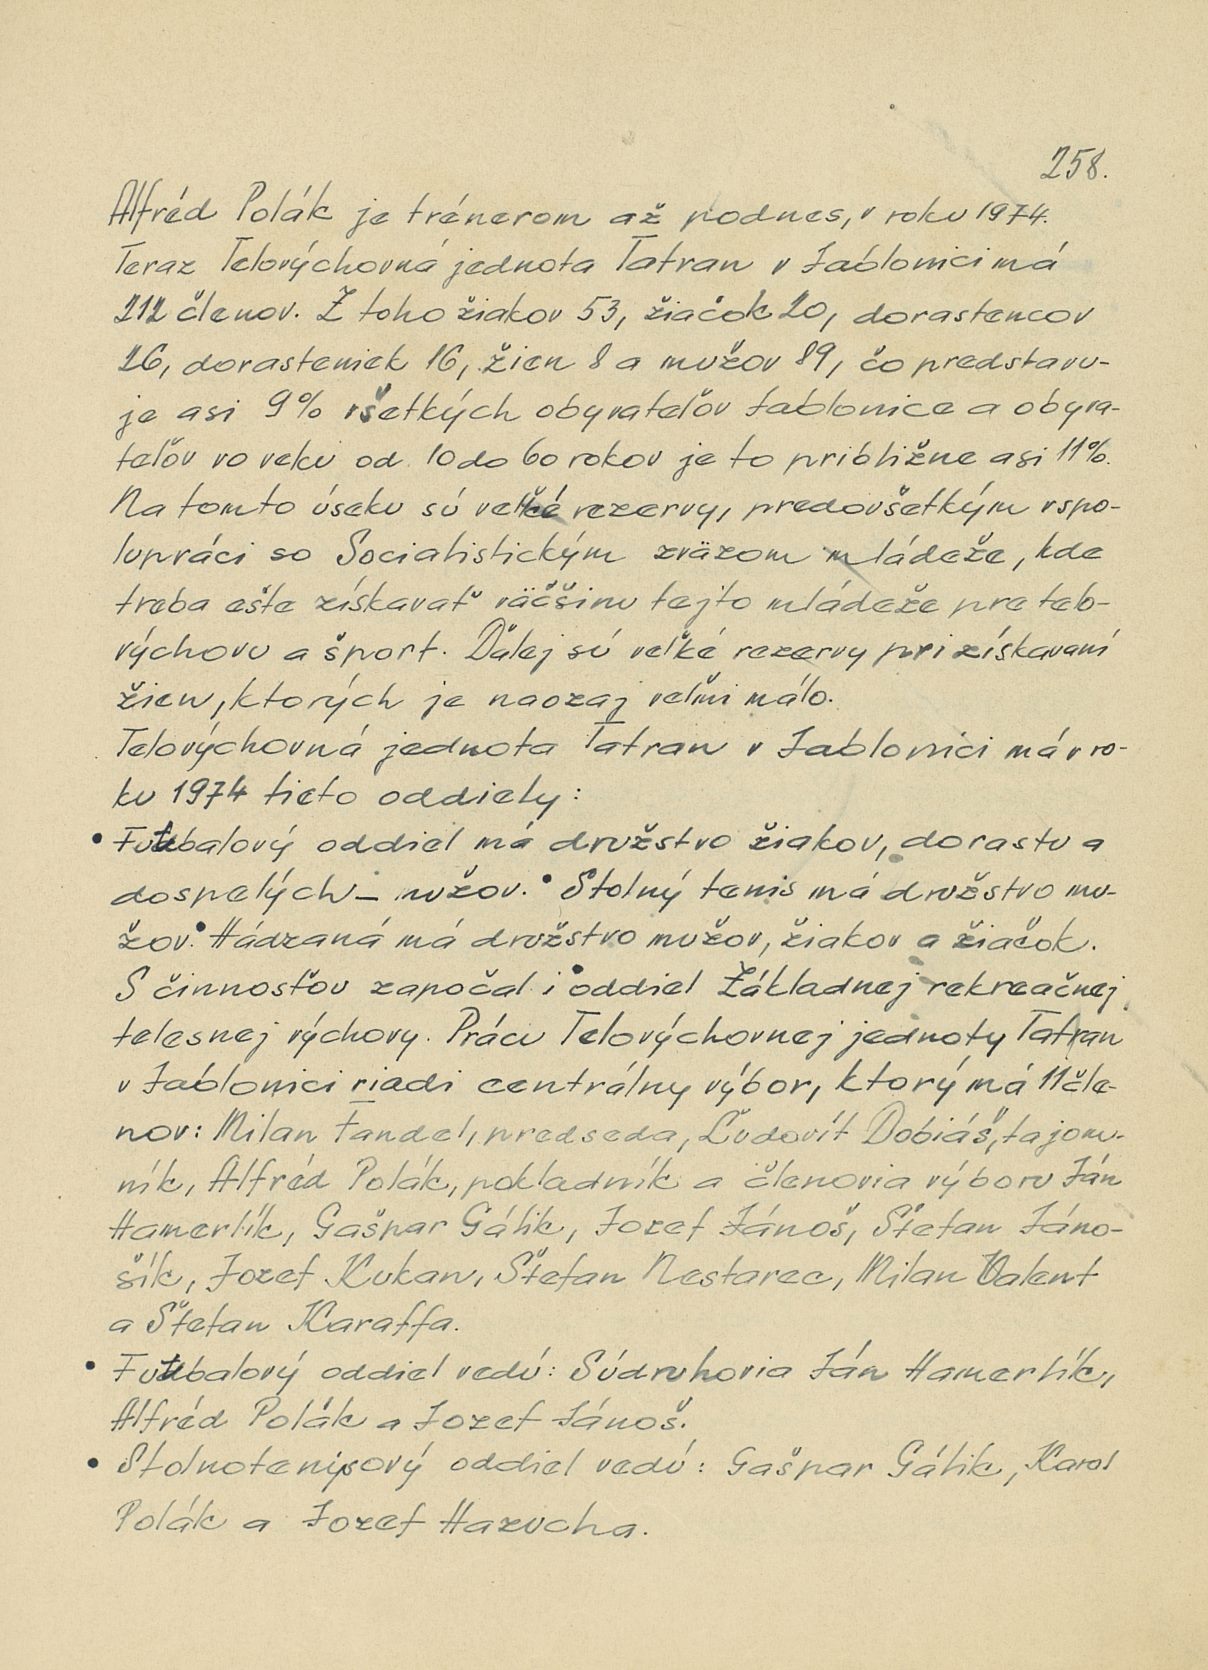 258.
Alfréd Polák je trénerom až podnes, v roku 1974.
Teraz Telovýchovná jednota Tatran v Jablonici má
212 členov. Z toho žiakov 53, žiačok 20, dorastencov
26, dorasteniek 16, žien 8 a mužov 89, čo predstavu-
je asi 9% všetkých obyvateľov Jablonice a obyva-
teľov vo veku od 10 do 60 rokov je to približne asi 11%.
Na tomto úseku sú veľké rezervy, predovšetkým v spo-
lupráci so Socialistickým zväzom mládeže, kde
treba ešte získavať väčšinu tejto mládeže pre telo-
výchovu a šport. Ďalej sú veľké rezervy pri získavaní
žien, ktorých je naozaj veľmi málo.
Telovýchovná jednota Tatran v Jablonici má v ro-
ku 1974 tieto oddiely:
• Futbalový oddiel má družstvo žiakov, dorastu a
dospelých – mužov. • Stolný tenis má družstvo mu-
žov. • Hádzaná má družstvo mužov, žiakov a žiačok.
S činnosťou započal i • oddiel Základnej rekreačnej
telesnej výchovy. Prácu Telovýchovnej jednoty Tatran
v Jablonici riadi centrálny výbor, ktorý má 11 čle-
nov: Milan Fandel, predseda, Ľudovít Dobiáš, tajom-
ník, Alfréd Polák, pokladník a členovia výboru Ján
Hamerlík, Gašpar Gálik, Jozef Jánoš, Štefan Jáno-
šík, Jozef Kukan, Štefan Nestarec, Milan Valent
a Štefan Karaffa.
• Futbalový oddiel vedú: Súdruhovia Ján Hamerlík,
Alfréd Polák a Jozef Jánoš.
• Stolnotenisový oddiel vedú: Gašpar Gálik, Karol
Polák a Jozef Hazucha.